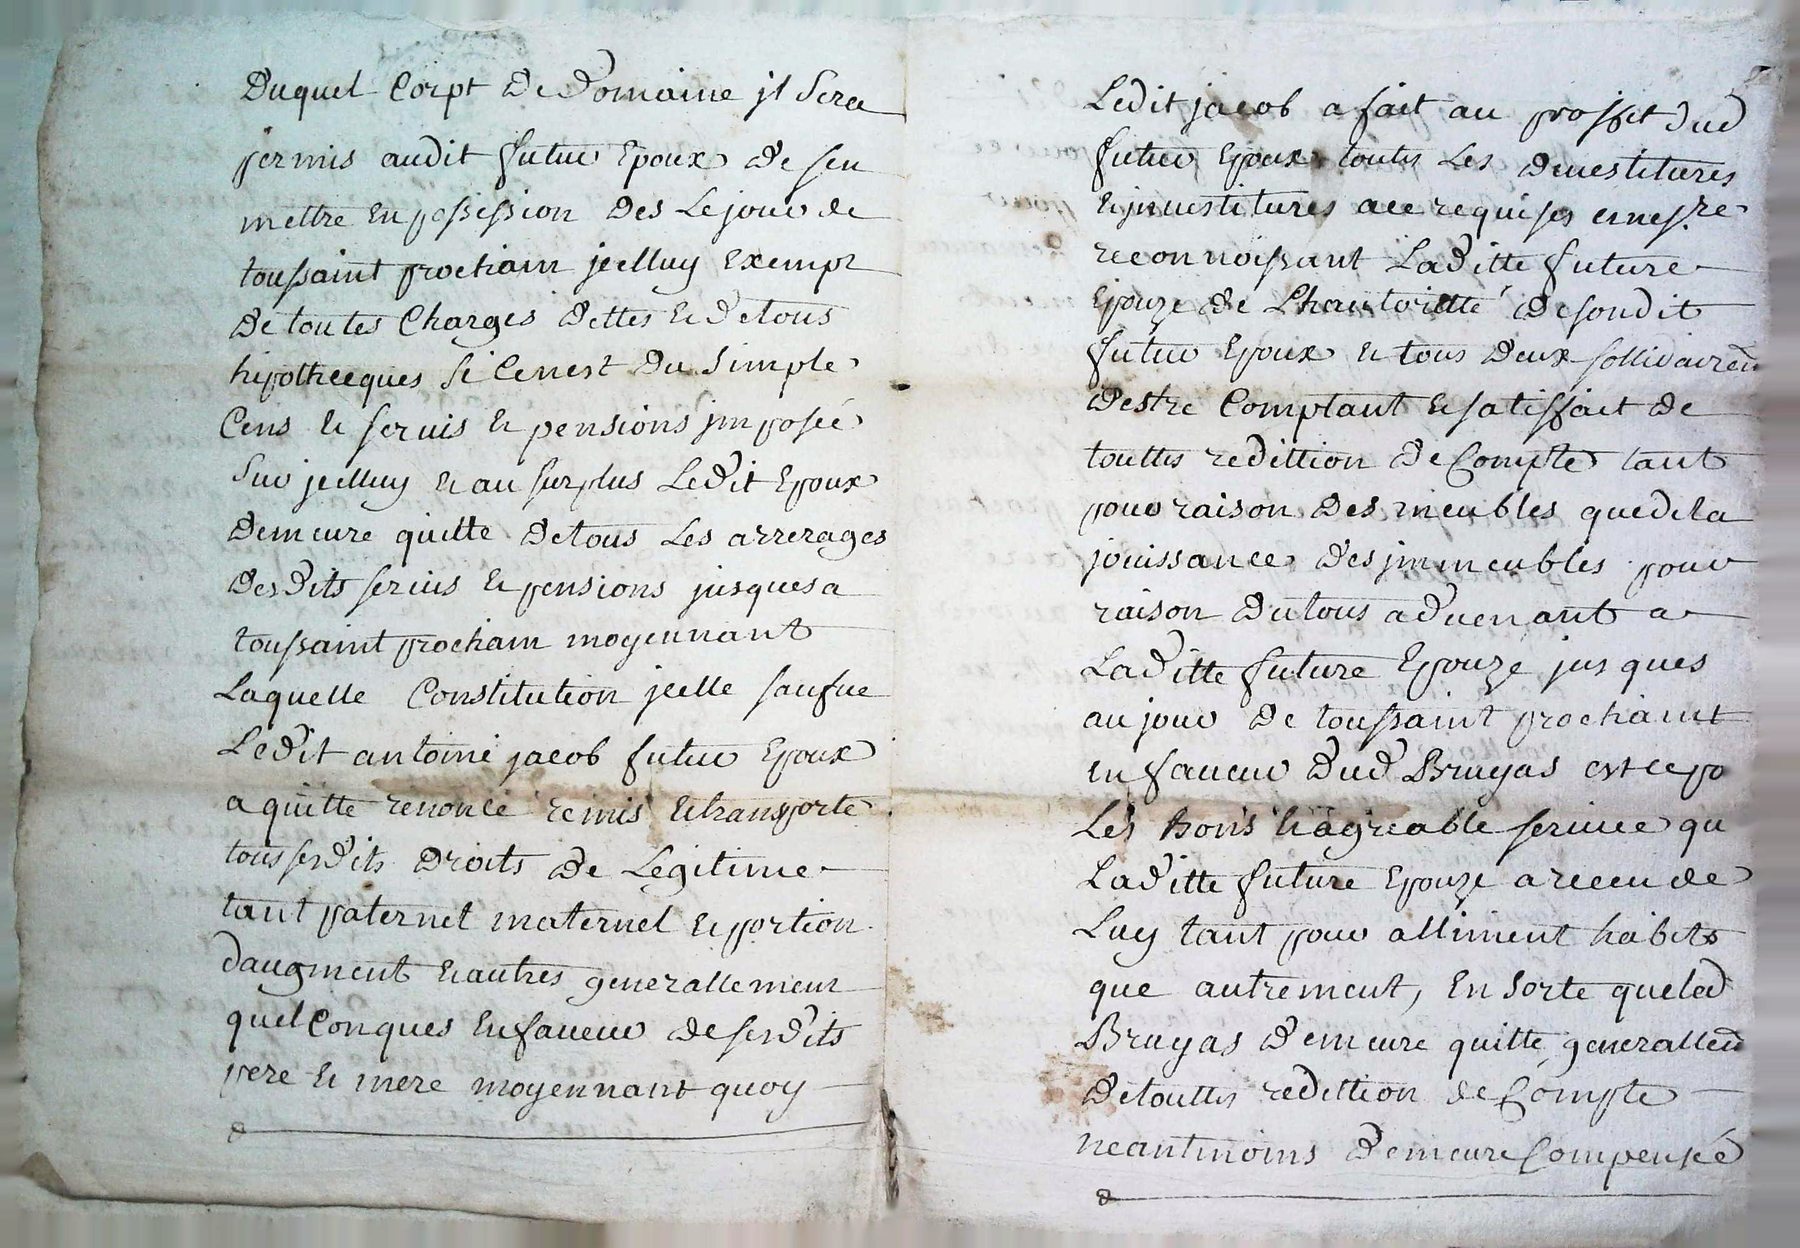 Duquel Corpt De Domaine jl Sera
permis audit futur Epoux De sen
mettre En possession Des Le jour de
toussaint prochain jcelluy Exempt
De toutes Charges Dettes & De tous
hipothecques si Cenest Du Simple
Cens & servis & pensions jmposée
Sur jcelluy & au surplus Ledit Epoux
Demeure quitte De tous Les arrerages
Desdits servis & pensions jusques a
toussaint prochain moyennant
Laquelle Constitution jcelle sauf que
Ledit antoine jacob futur Epoux
a quitté renoncé remis & transporté
tous sesdits Droits De Legitime
tant paternel maternel & portion
daugment & autres generallement
quelConques En faveur De sesdits
pere & mere moyennant quoy
Ledit jacob a fait au proffit dud
futur Epoux touttes Les Devestitures
& jnvestitures a ce requises
reconnoissant Laditte future
Epouze de Lhautoritté De sondit
futur Epoux & tous Deux
Destre Comptant & satisfait de
touttes reddition De Compte tant
pour raison Des meubles que de la
jouissance Des jmmeubles pour
raison Du tous advenant a
Laditte future Epouze jusques
au jour De toussaint prochaint
En faveur Dud Bruyas
Les bons & agreable service qu
Laditte future Epouze a receu de
Luy tant pour alliment habits
que autrement, En Sorte que led
Bruyas Demeure quitte
De touttes reddition de Compte
neantmoins Demeure Compensée